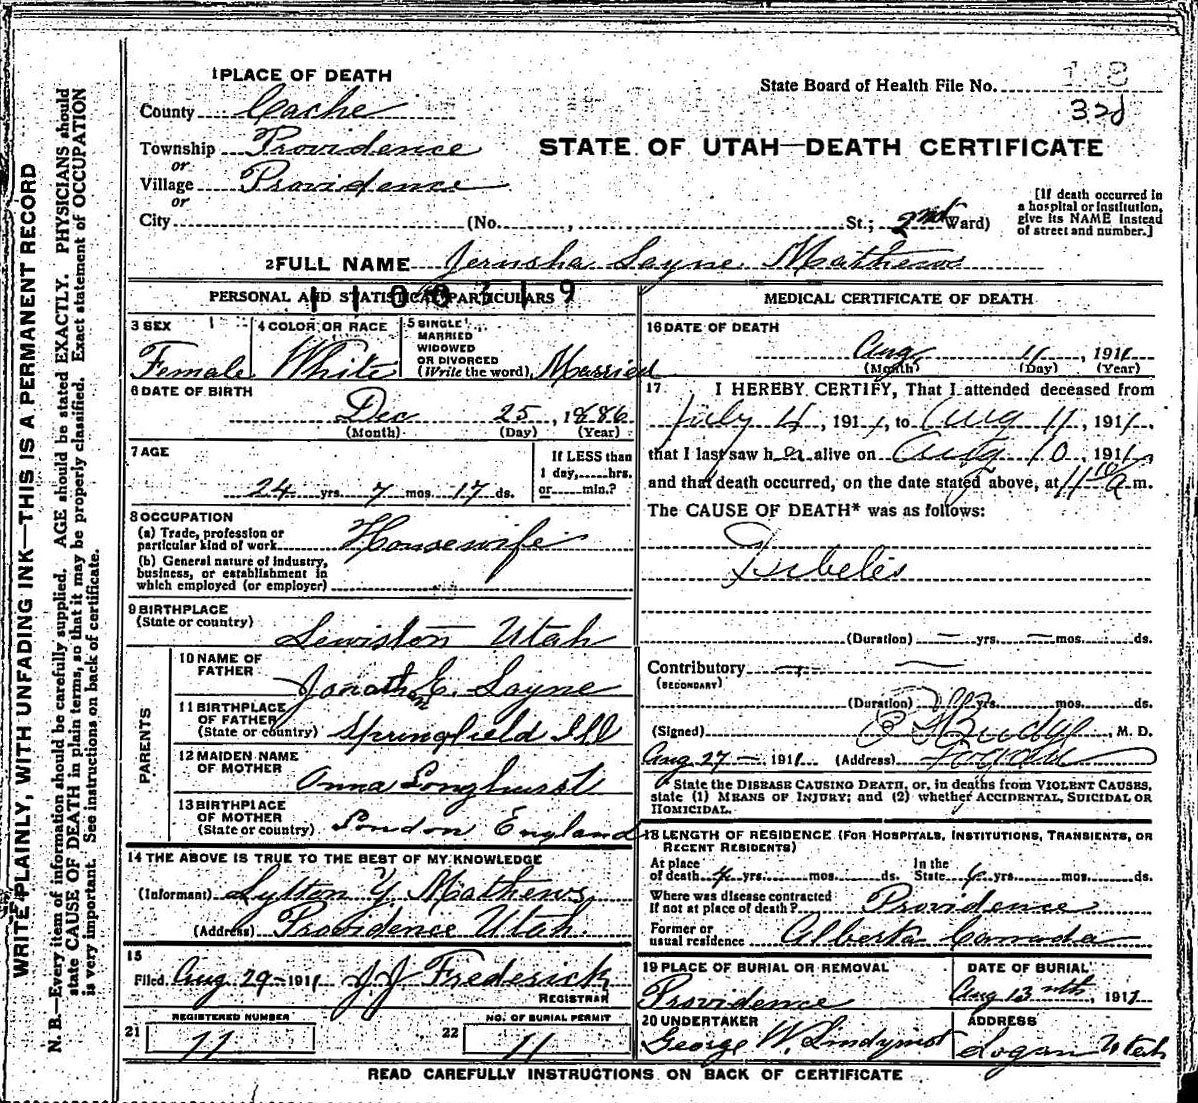 WRITE PLAINLY, WITH UNFADING INK—THIS IS A PERMANENT RECORD
N. B.—Every item of information should be carefully supplied. AGE should be stated EXACTLY. PHYSICIANS should
state CAUSE OF DEATH in plain terms, so that it may be properly classified. Exact statement of OCCUPATION
is very important. See instructions on back of certificate.
1 PLACE OF DEATH
County Cache
Township Providence
or
Village Providence
or
City (No. , St.; 2nd Ward)
State Board of Health File No.
STATE OF UTAH—DEATH CERTIFICATE
[If death occurred in
a hospital or institution,
give its NAME instead
of street and number.]
2 FULL NAME Jerusha Layne Mathews
PERSONAL AND STATISTICAL PARTICULARS
3 SEX
Female
4 COLOR OR RACE
White
5 SINGLE
MARRIED
WIDOWED
OR DIVORCED
(Write the word) Married
6 DATE OF BIRTH
Dec 25, 1886
(Month) (Day) (Year)
7 AGE
24 yrs. 7 mos. 17 ds.
If LESS than
1 day,......hrs.
or......min.?
8 OCCUPATION
(a) Trade, profession or
particular kind of work Housewife
(b) General nature of industry,
business, or establishment in
which employed (or employer)
9 BIRTHPLACE
(State or country)
Lewiston Utah
PARENTS
10 NAME OF
FATHER
Jonathan E. Layne
11 BIRTHPLACE
OF FATHER
(State or country) Springfield Ill
12 MAIDEN NAME
OF MOTHER
Anna Longhurst
13 BIRTHPLACE
OF MOTHER
(State or country) London England
14 THE ABOVE IS TRUE TO THE BEST OF MY KNOWLEDGE
(Informant) Lytton Y. Mathews
(Address) Providence Utah.
15
Filed Aug 29—1911 J. J. Frederick
REGISTRAR
21
REGISTERED NUMBER
11
22
NO. OF BURIAL PERMIT
11
MEDICAL CERTIFICATE OF DEATH
16 DATE OF DEATH
Aug 11, 1911
(Month) (Day) (Year)
17 I HEREBY CERTIFY, That I attended deceased from
July 4, 1911, to Aug 11, 1911,
that I last saw her alive on Aug 10, 1911,
and that death occurred, on the date stated above, at m.
The CAUSE OF DEATH* was as follows:
(Duration) — yrs. — mos. ds.
Contributory
(SECONDARY)
(Duration) yrs. mos. ds.
(Signed) M. D.
Aug 27—1911 (Address) Logan
* State the DISEASE CAUSING DEATH, or, in deaths from VIOLENT CAUSES,
state (1) MEANS OF INJURY; and (2) whether ACCIDENTAL, SUICIDAL OR
HOMICIDAL.
18 LENGTH OF RESIDENCE (FOR HOSPITALS, INSTITUTIONS, TRANSIENTS, OR
RECENT RESIDENTS)
At place In the
of death 4 yrs. mos. ds. State yrs. mos. ds.
Where was disease contracted
if not at place of death? Providence
Former or
usual residence Alberta Canada
19 PLACE OF BURIAL OR REMOVAL
Providence
DATE OF BURIAL
Aug 13, 1911
20 UNDERTAKER
George W. Lindquist
ADDRESS
Logan Utah
READ CAREFULLY INSTRUCTIONS ON BACK OF CERTIFICATE